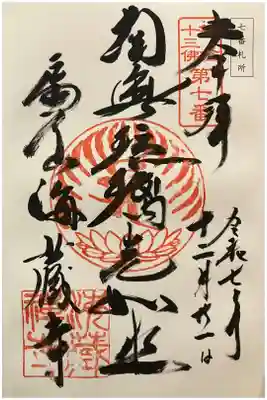 七番札所
奉拝
十三佛第七番
南無瑠璃光如来
海蔵寺
令和七年
十二月廿一日